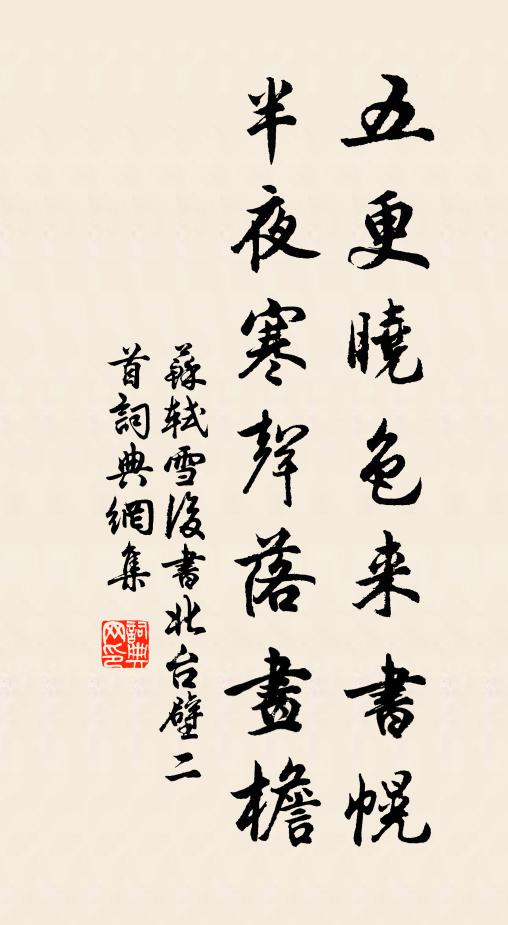 五更曉色来書幌
半夜寒聲落畫檐
蘇軾雪後書北台壁二
首詞典網集
詞典网印